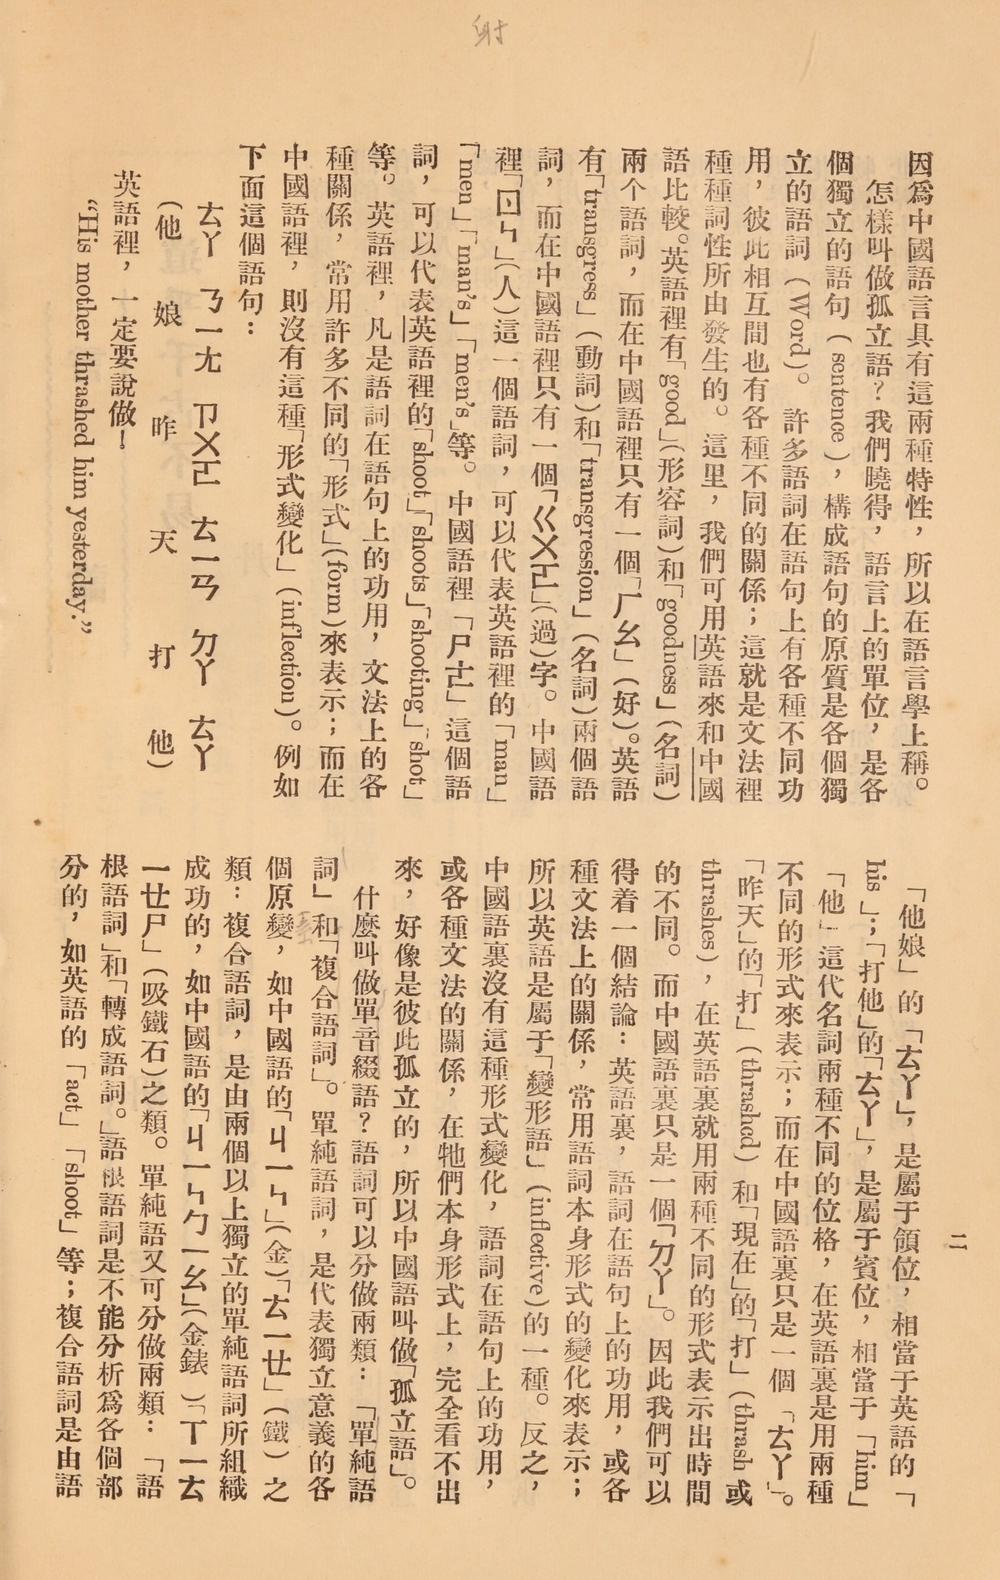 射
因爲中國語言具有這兩種特性，所以在語言學上稱。
怎樣叫做孤立語？我們曉得，語言上的單位，是各
個獨立的語句（sentence），構成語句的原質是各個獨
立的語詞（Word）。許多語詞在語句上有各種不同功
用，彼此相互間也有各種不同的關係；這就是文法裡
種種詞性所由發生的。這里，我們可用英語來和中國
語比較。英語裡有「good」（形容詞）和「goodness」（名詞）
兩个語詞，而在中國語裡只有一個「ㄏㄠ」（好）。英語
有「transgress」（動詞）和「transgression」（名詞）兩個語
詞，而在中國語裡只有一個「ㄍㄨㄛ」（過）字。中國語
裡「ㄖㄣ」（人）這一個語詞，可以代表英語裡的「man」
「men」「man's」「men's」等。中國語裡「ㄕㄜ」這個語
詞，可以代表英語裡的「shoot」「shoots」「shooting」「shot」
等。英語裡，凡是語詞在語句上的功用，文法上的各
種關係，常用許多不同的「形式」（form）來表示；而在
中國語裡，則沒有這種「形式變化」（inflection）。例如
下面這個語句：
ㄊㄚ ㄋㄧㄤ ㄗㄨㄛ ㄊㄧㄢ ㄉㄚ ㄊㄚ
（他 娘 昨 天 打 他）
英語裡，一定要說做！
“His mother thrashed him yesterday.”
二
「他娘」的「ㄊㄚ」，是屬于領位，相當于英語的「
his」；「打他」的「ㄊㄚ」，是屬于賓位，相當于「him」
「他」這代名詞兩種不同的位格，在英語裏是用兩種
不同的形式來表示；而在中國語裏只是一個「ㄊㄚ」。
「昨天」的「打」（thrashed）和「現在」的「打」（thrash或
thrashes），在英語裏就用兩種不同的形式表示出時間
的不同。而中國語裏只是一個「ㄉㄚ」。因此我們可以
得着一個結論：英語裏，語詞在語句上的功用，或各
種文法上的關係，常用語詞本身形式的變化來表示；
所以英語是屬于「變形語」（inflective）的一種。反之，
中國語裏沒有這種形式變化，語詞在語句上的功用，
或各種文法的關係，在牠們本身形式上，完全看不出
來，好像是彼此孤立的，所以中國語叫做「孤立語」。
什麼叫做單音綴語？語詞可以分做兩類：「單純語
詞」和「複合語詞」。單純語詞，是代表獨立意義的各
個原變，如中國語的「ㄐㄧㄣ」（金）「ㄊㄧㄝ」（鐵）之
類：複合語詞，是由兩個以上獨立的單純語詞所組織
成功的，如中國語的「ㄐㄧㄣㄅㄧㄠ」（金錶）「ㄒㄧㄊ
ㄧㄝㄕ」（吸鐵石）之類。單純語又可分做兩類：「語
根語詞」和「轉成語詞。」語根語詞是不能分析爲各個部
分的，如英語的「act」「shoot」等；複合語詞是由語